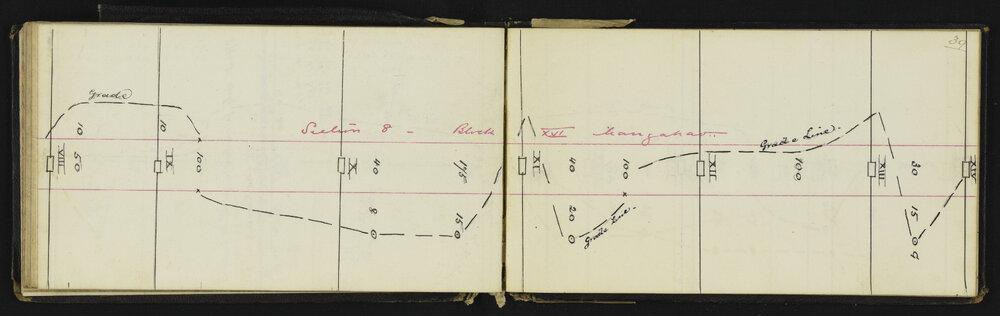 39
Grade
Section 8 - Block XVI Mangahao.
Grade Line.
10 10
VIII 50 IX 100 X 40 175 XI 40 100 XII 100 XIII 30 XIV
8 15 20 15 9
Grade Line.